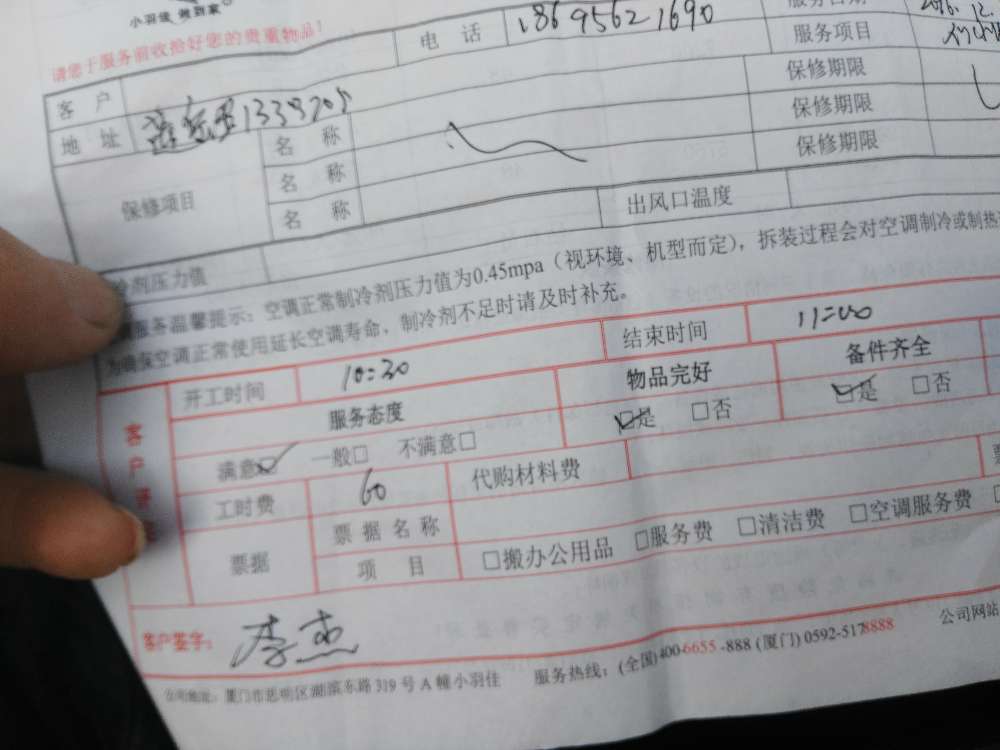 小羽佳 做到家
请您于服务前收拾好您的贵重物品!
客 户
电 话 18695621690
服务日期 2016.12.
服务项目
地 址
保修项目
名 称
保修期限
名 称
保修期限
名 称
保修期限
冷剂压力值
出风口温度
服务温馨提示：空调正常制冷剂压力值为0.45mpa（视环境、机型而定），拆装过程会对空调制冷或制热
为确保空调正常使用延长空调寿命，制冷剂不足时请及时补充。
开工时间 10:30
结束时间 11:00
客户
服务态度
物品完好
备件齐全
满意☑ 一般□ 不满意□
☑是 □否
☑是 □否
工时费 60
代购材料费
票据
票 据 名 称
项 目
□搬办公用品 □服务费 □清洁费 □空调服务费
客户签字：
公司地址：厦门市思明区湖滨东路319号A幢小羽佳
服务热线：(全国)400-6655-888 (厦门) 0592-5178888
公司网站